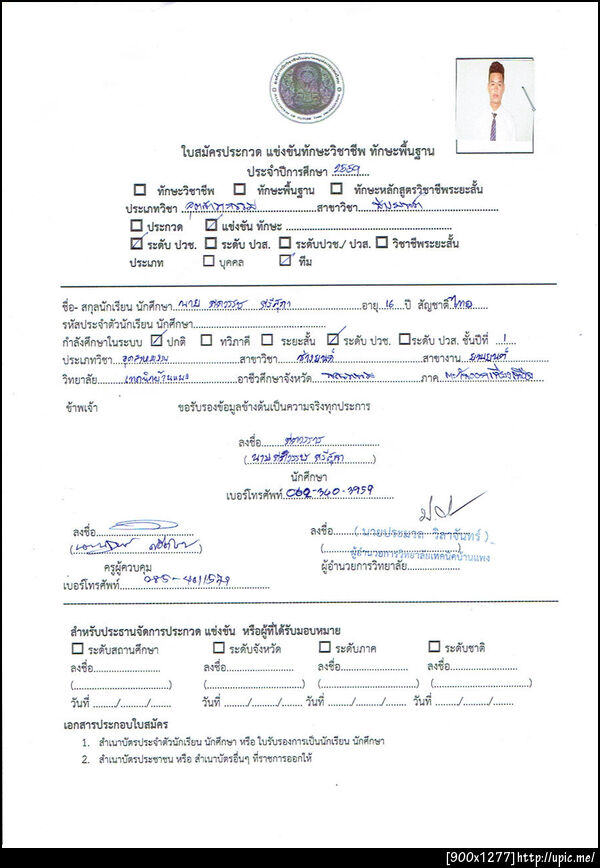 ใบสมัครประกวด แข่งขันทักษะวิชาชีพ ทักษะพื้นฐาน
ประจำปีการศึกษา 2559
ทักษะวิชาชีพ ทักษะพื้นฐาน ทักษะหลักสูตรวิชาชีพระยะสั้น
ประเภทวิชา อุตสาหกรรม สาขาวิชา
ประกวด แข่งขัน ทักษะ
ระดับ ปวช. ระดับ ปวส. ระดับปวช./ ปวส. วิชาชีพระยะสั้น
ประเภท บุคคล ทีม
ชื่อ- สกุลนักเรียน นักศึกษา นาย อายุ 16 ปี สัญชาติ ไทย
รหัสประจำตัวนักเรียน นักศึกษา
กำลังศึกษาในระบบ ปกติ ทวิภาคี ระยะสั้น ระดับ ปวช. ระดับ ปวส. ชั้นปีที่ 1
ประเภทวิชา อุตสาหกรรม สาขาวิชา ช่างยนต์ สาขางาน ยานยนต์
วิทยาลัย เทคนิคบ้านแพง อาชีวศึกษาจังหวัด นครพนม ภาค ตะวันออกเฉียงเหนือ
ข้าพเจ้า ขอรับรองข้อมูลข้างต้นเป็นความจริงทุกประการ
ลงชื่อ
(นาย )
นักศึกษา
เบอร์โทรศัพท์ 062-340-3959
ลงชื่อ
ลงชื่อ (นายประมาล วิลาจันทร์)
ครูผู้ควบคุม
ผู้อำนวยการวิทยาลัยเทคนิคบ้านแพง
ผู้อำนวยการวิทยาลัย
เบอร์โทรศัพท์
สำหรับประธานจัดการประกวด แข่งขัน หรือผู้ที่ได้รับมอบหมาย
ระดับสถานศึกษา ระดับจังหวัด ระดับภาค ระดับชาติ
ลงชื่อ ลงชื่อ ลงชื่อ ลงชื่อ
(....................) (....................) (....................) (....................)
วันที่ ......../......../........ วันที่ ......../......../........ วันที่ ......../......../........ วันที่ ......../......../........
เอกสารประกอบใบสมัคร
1. สำเนาบัตรประจำตัวนักเรียน นักศึกษา หรือ ใบรับรองการเป็นนักเรียน นักศึกษา
2. สำเนาบัตรประชาชน หรือ สำเนาบัตรอื่นๆ ที่ราชการออกให้
[900x1277]http://upic.me/